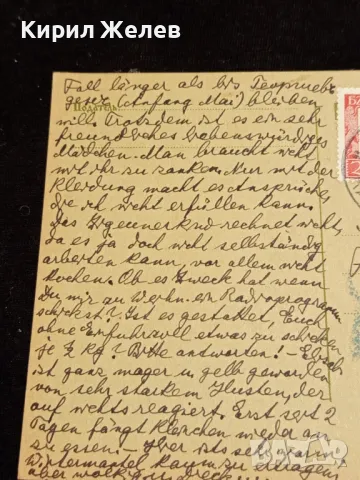 Кирил Желев
Податель:
Fall länger als bis
(Anfang Mai) bleiben
will. Trotzdem ist es ein sehr
freundliches liebenswürdiges
Mädchen. Man braucht nicht
mit ihr zu zanken. Nur mit der
Kleidung macht es Ansprüche
die ich nicht erfüllen kann.
Das Zigeunerkind rechnet nicht,
da es ja doch nicht selbständig
arbeiten kann, vor allem nicht
kochen. Ob es Zweck hat wenn
Du mir zu Weihn. ein Radioprogramm
schickst? Ist es gestattet, Euch
ohne Einfuhrzoll etwas zu schicken
je ½ kg? Bitte antworten! –
ist ganz mager u. gelb geworden
von sehr starkem Husten, der
auf nichts reagiert. Erst seit 2
Tagen fängt Klärchen wieder an
zu essen. – Hier ist sehr warm
Wintermantel kaum zu ertragen
aber